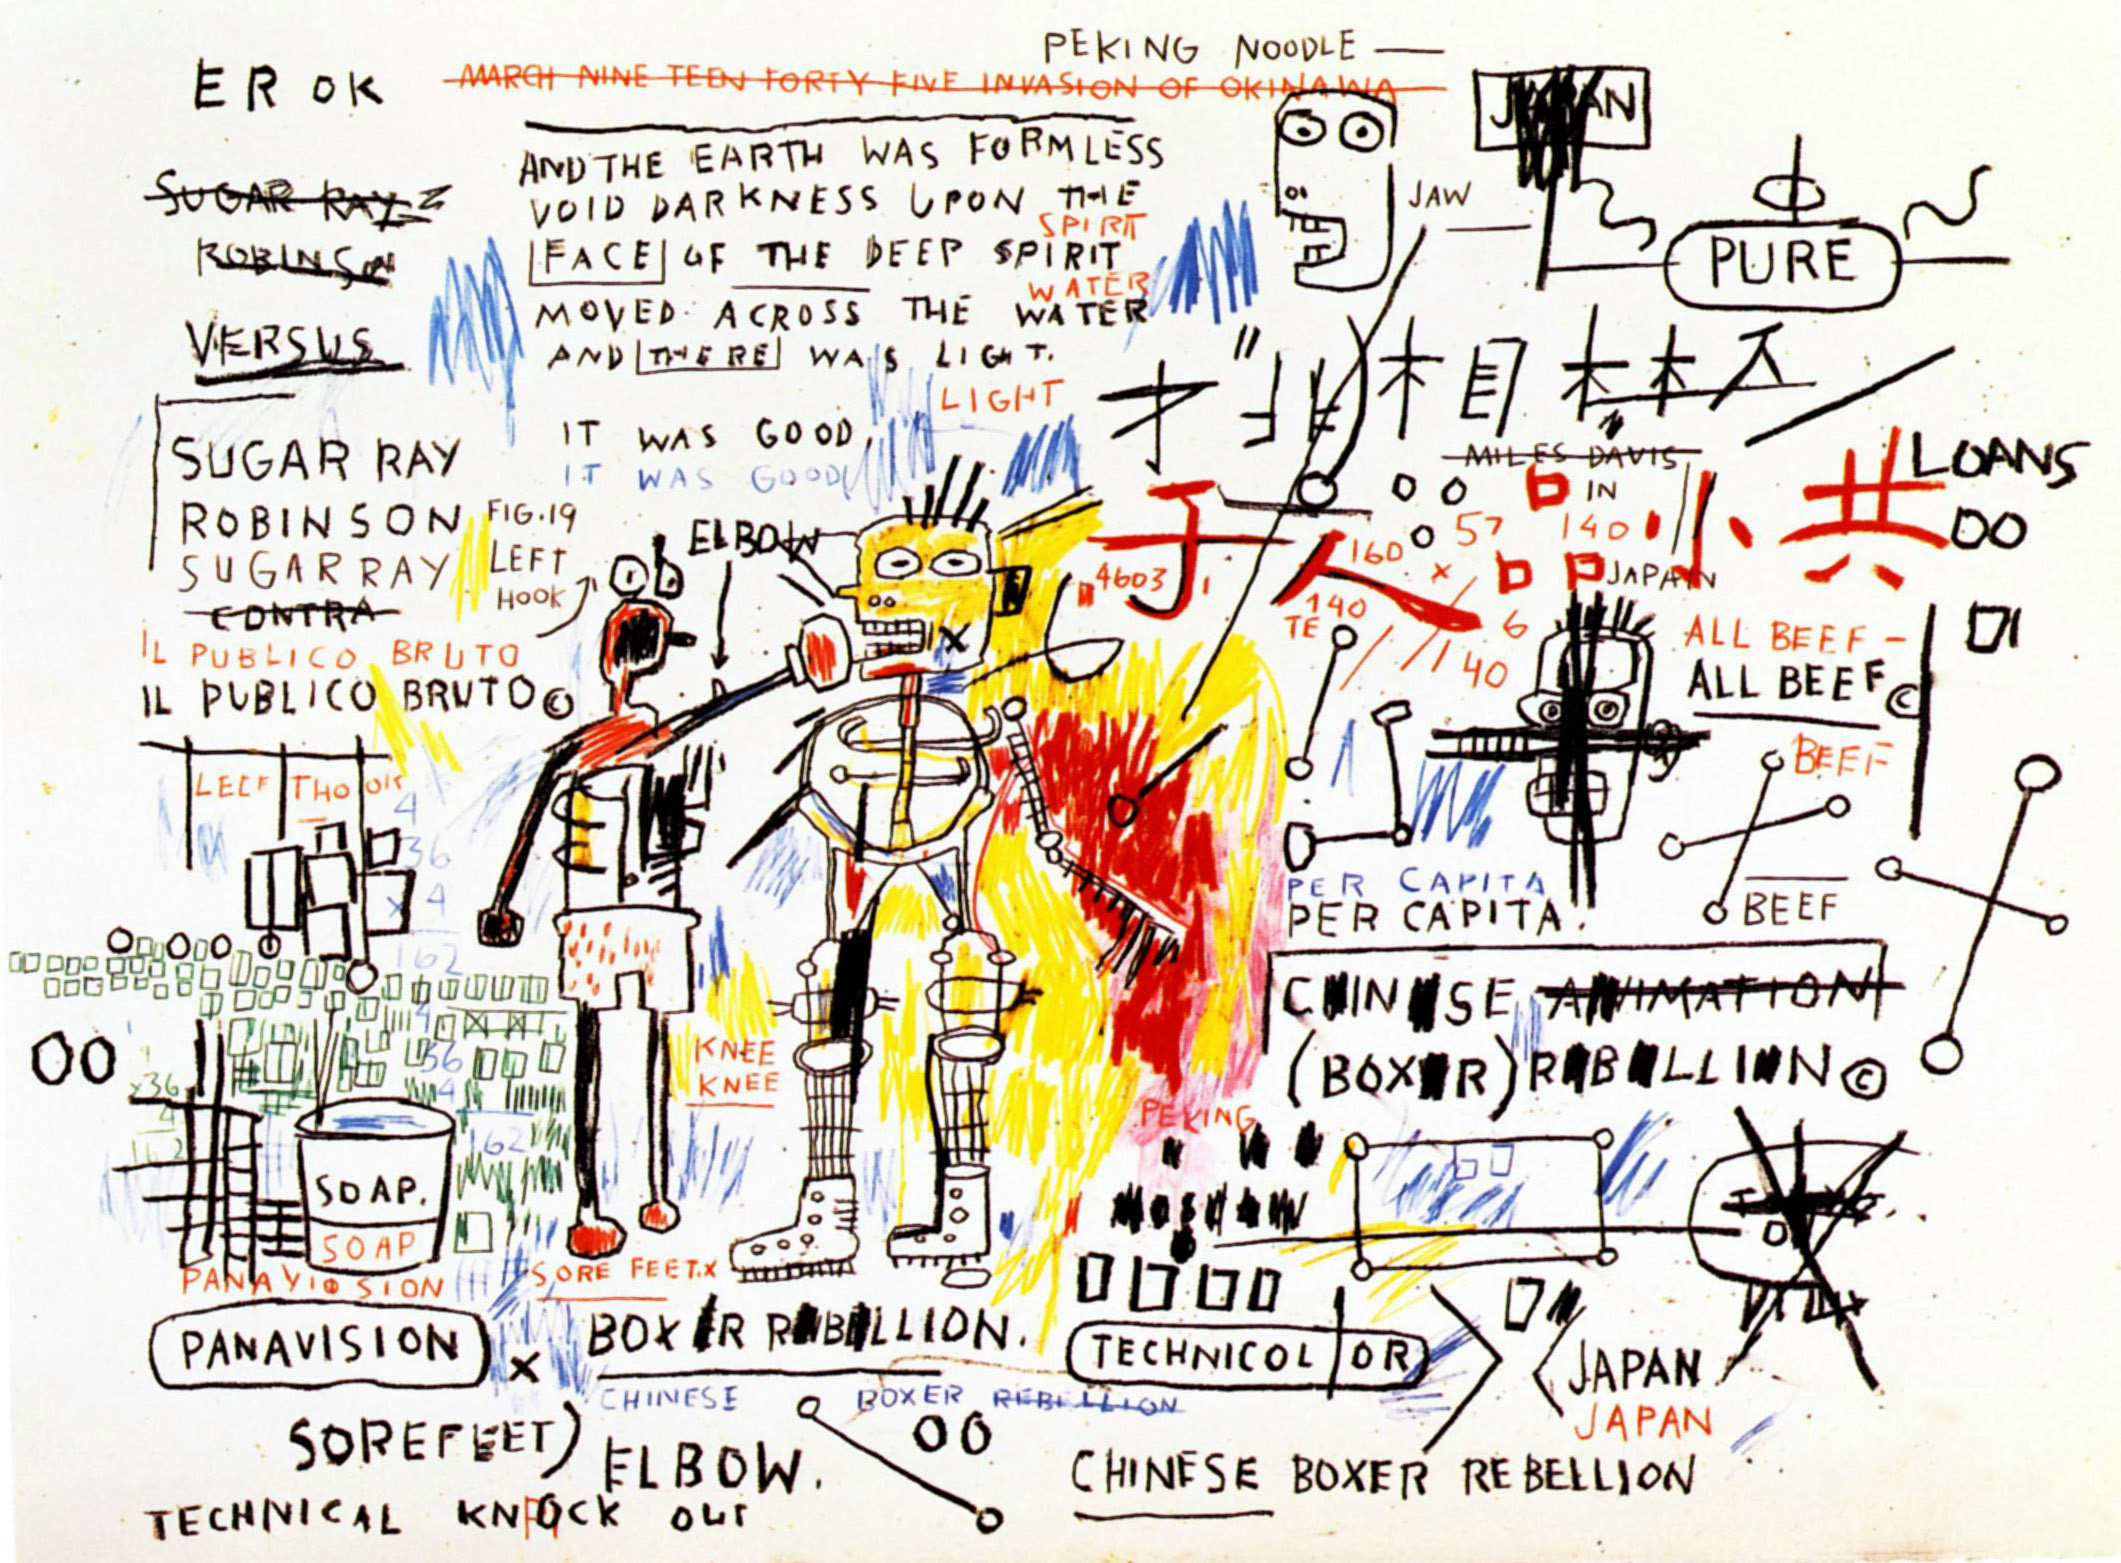 PEKING NOODLE —
ER OK
MARCH NINE TEEN FORTY FIVE INVASION OF OKINAWA
JAPAN
AND THE EARTH WAS FORMLESS
VOID DARKNESS UPON THE
SPIRT
FACE OF THE DEEP SPIRIT
WATER
MOVED ACROSS THE WATER
AND THERE WAS LIGHT.
LIGHT
IT WAS GOOD,
IT WAS GOOD
SUGAR RAY
ROBINSON
VERSUS
SUGAR RAY
ROBINSON
SUGAR RAY
CONTRA
IL PUBLICO BRUTO
IL PUBLICO BRUTO©
FIG.19
LEFT
HOOK
ELBOW
JAW
PURE
MILES DAVIS
IN
JAPAN
LOANS
OO
子 人 品 小 共
4603
160
57
140
x
140
TE
6
140
ALL BEEF-
ALL BEEF©
BEEF
BEEF
PER CAPITA
PER CAPITA.
CHINESE ANIMATION
(BOXER) REBELLION©
LEEF THOOK
4
36
x 4
162
4
36
4
162
OO
x36
4
162
KNEE
KNEE
SOAP.
SOAP
PANAVISION
PANAVISION
x
SORE FEET.x
BOXER REBELLION.
CHINESE BOXER REBELLION
PEKING
TECHNICOLOR
JAPAN
JAPAN
SOREFEET)
ELBOW.
OO
CHINESE BOXER REBELLION
TECHNICAL KNOCK OUT